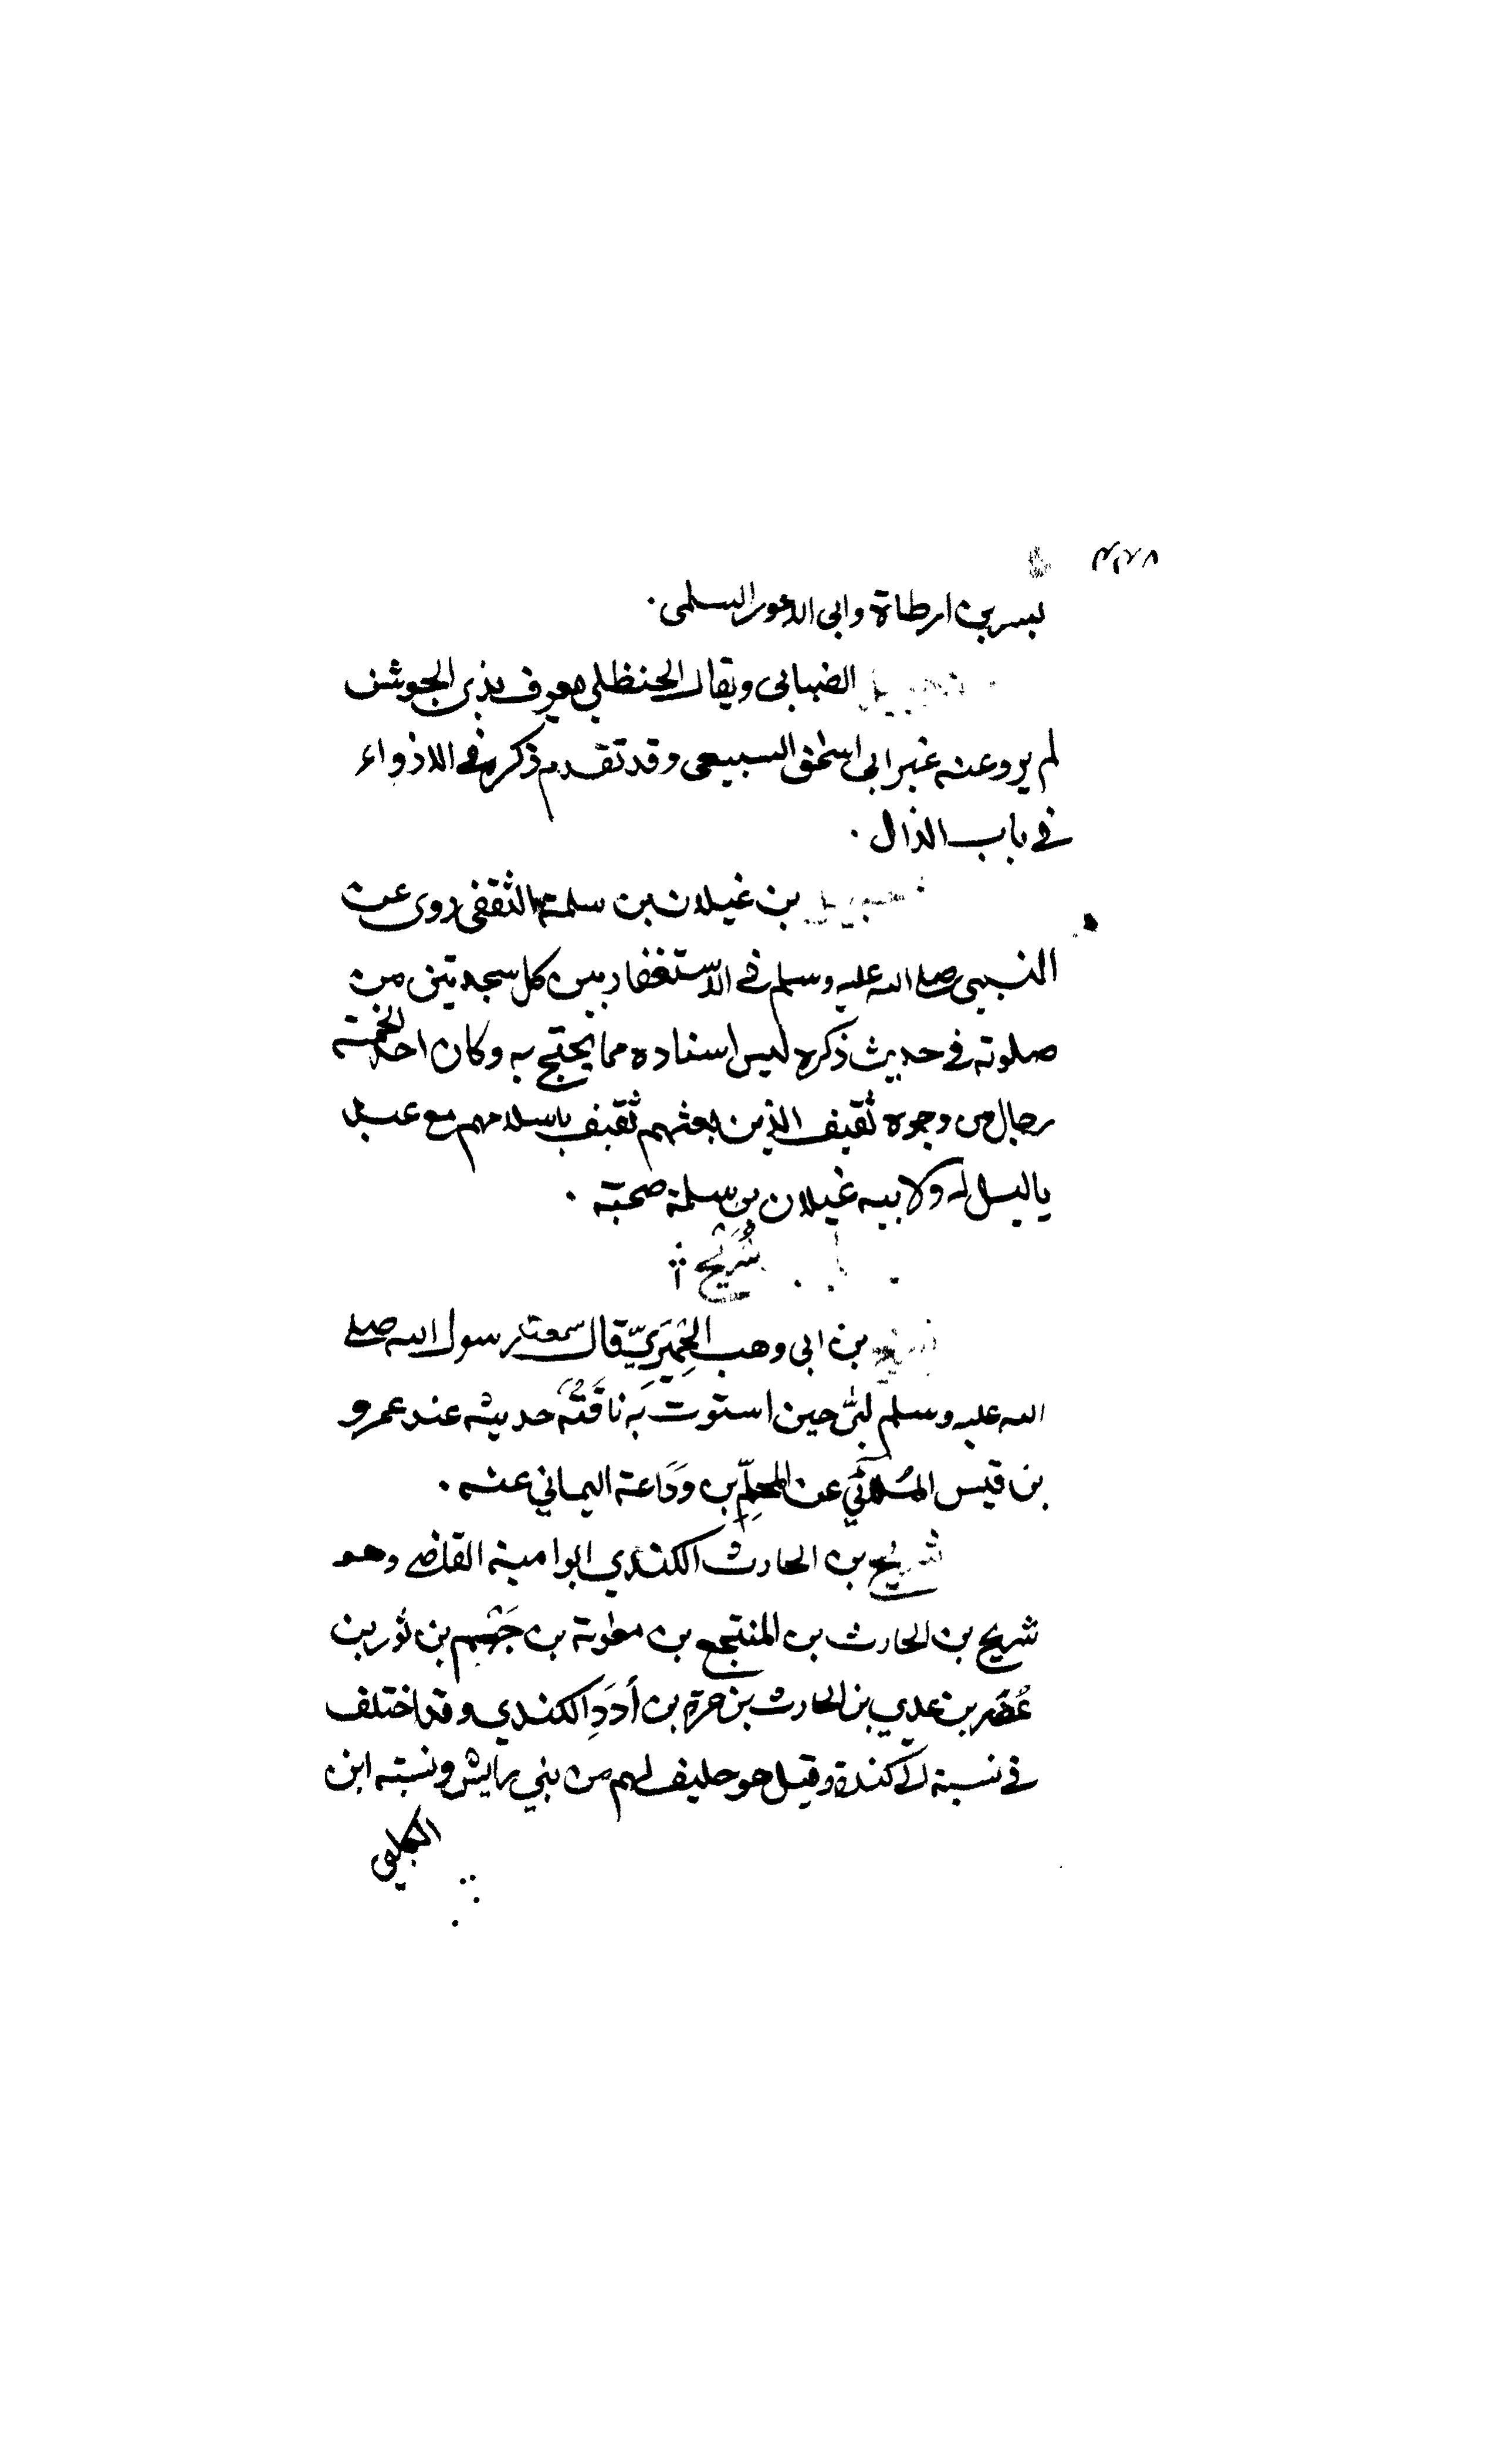 بسر بن ارطاة وابى الاعور السلمى .
الضبابى ويقال الحنظلى معرف بذى الجوشن
لم يرو عنه غير ابى اسحٰق السبيعى وقد تقدم ذكره فى الاذواء
فى باب الذال .
بن غيلان بن سلمة الثقفى روى عن
النبى صلى الله عليه وسلم فى الاستغفار بين كل سجدتين من
صلوته فى حديث ذكره ليس اسناده مما يحتج به وكان احد الخمسة
رجال من وجوه ثقيف الذين بعثهم ثقيف باسلامهم مع عبد
ياليل له ولابيه غيلان بن سلمة صحبة .
شُرَيح
بن ابى وهب الحِمْيَرِيّ قال سمعت رسول الله صلى
الله عليه وسلم لبّى حين استوت به ناقَتُه حديثه عند عمرو
بن قيس المُلائي عن المحلِّم بن وَدَاعة اليماني عنه .
شريح بن الحارث الكندي ابو امية القاضى وهو
شريح بن الحارث بن المنتجع بن معٰوية بن جَهْم بن ثور بن
عُفَير بن عدي بن الحارث بن مرة بن أدَدِ الكندي وقد اختلف
فى نسبة الى كندة وقيل هو حليف لهم من بني رايش ونسبته ابن
الكلبى